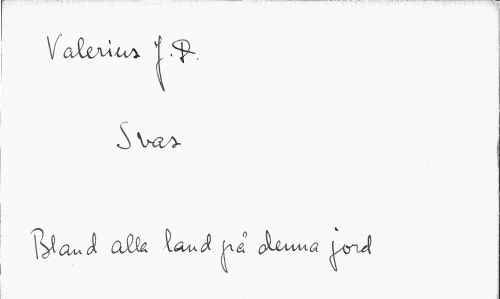 Valerius J. D.
Svar
Bland alla land på denna jord